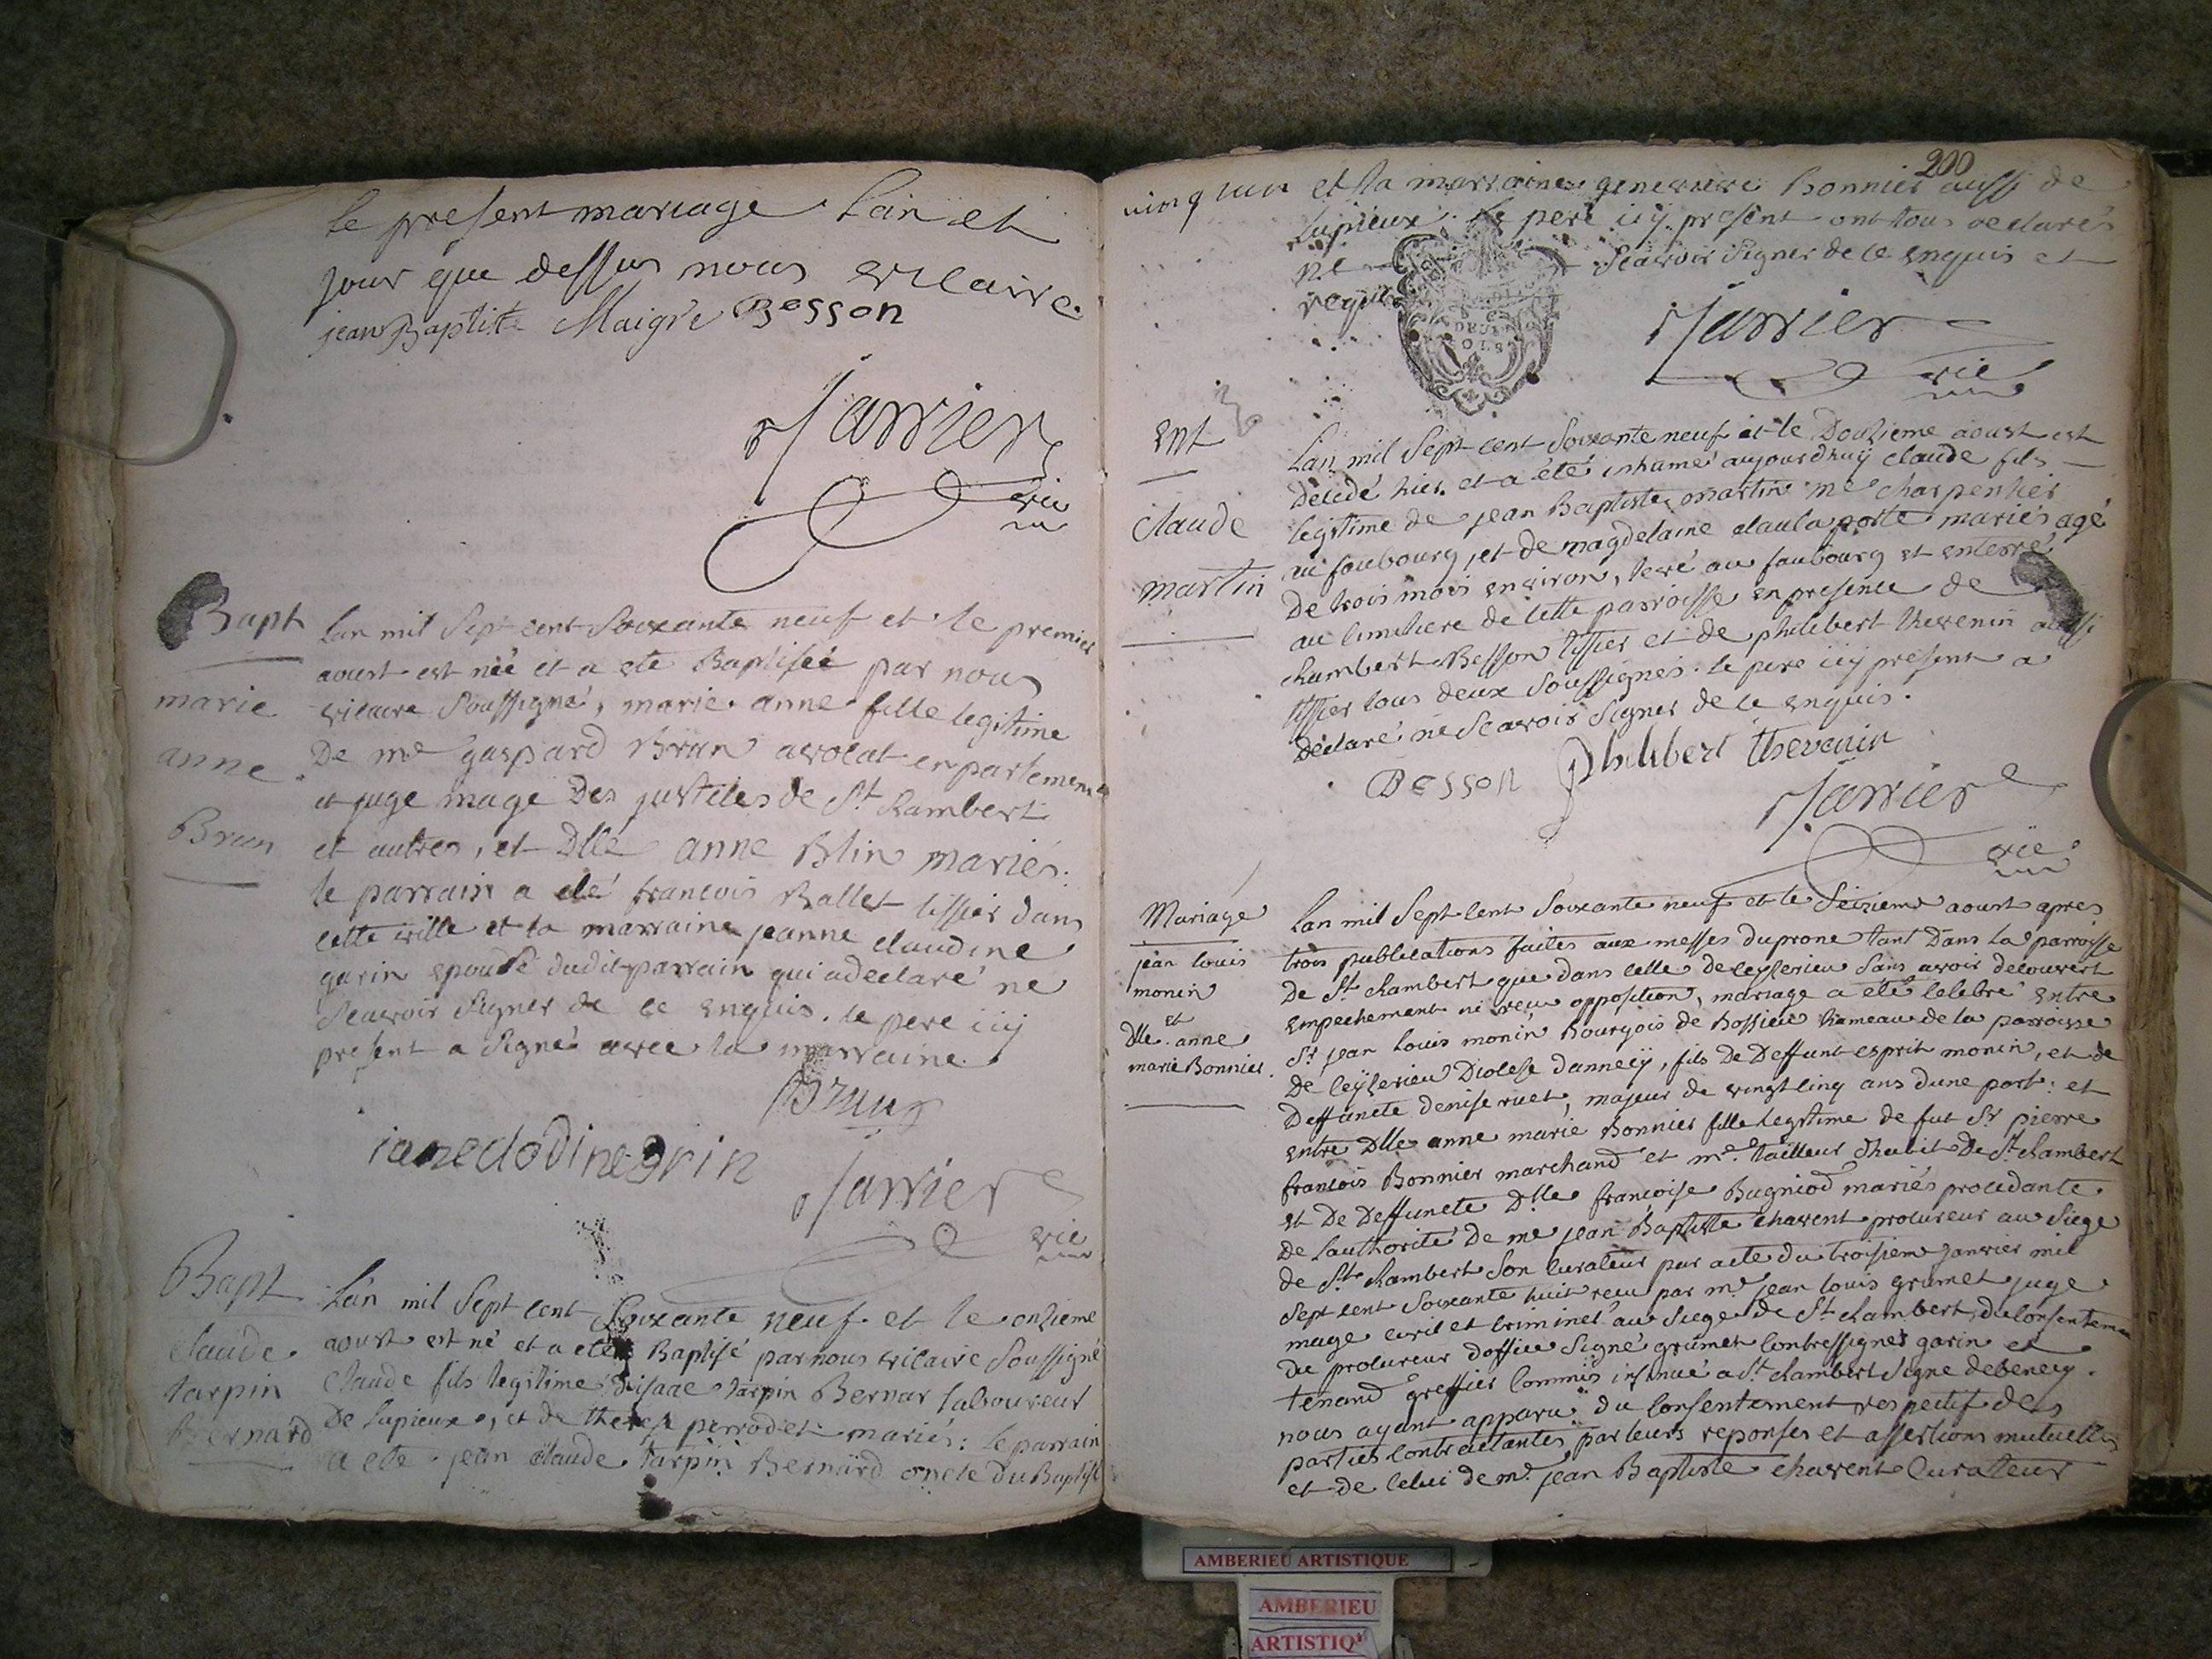 le present mariage Lan et
jour que dessus nous vicaire.
jean Baptite Maigre Besson
Jarrier
vic
Bapt
marie
anne
Brun
Lan mil Sept cent Soixante neuf et le premier
aoust est née et a ete Baptisée par nous
vicaire Soussigné, marie anne fille legitime
De me gaspard Brun avocat en parlement
et juge mage Des justices de St Rambert
et autres, et Dlle anne Blin mariés.
le parrain a eté francois Ballet tissier dans
cette ville et la marraine jeanne claudine
garin epouse dudit parrain qui a declaré ne
Scavoir Signer de ce enquis. le pere icy
present a Signé avec la marraine.
Brun
ianeclodinegrin
Jarrier
vic
Bapt
claude
tarpin
Bernard
Lan mil Sept cent Soixante neuf et le onzieme
aoust est né et a eté Baptisé par nous vicaire Soussigné
claude fils legitime disaac tarpin Bernar laboureur
De Lupieux, et de therese perrodet mariés: le parrain
a ete jean claude tarpin Bernard oncle du Baptisé
200
et la marraine genevieve Bonnier aussi de
Lupieux. le pere icy present ont tous declarés
ne Scavoir Signer de ce enquis et
requis
Jarrier
vic
Ent
claude
martin
Lan mil Sept cent Soixante neuf et le Douzieme aoust est
Decedé hier et a été inhumé aujourdhuy claude fils
legitime de jean Baptiste martin me charpentier
au faubourg, et de magdelaine delaporte mariés agé
De trois mois environ, levé au faubourg et enterré
au cimetiere de cette parroisse en presence de
rambert Besson tissier et de philibert thevenin aussi
tissier tous deux Soussignés. le pere icy present a
declaré ne Scavoir Signer de ce enquis.
Besson philibert thevenin
Jarrier
vic
Mariage
jean louis
monin
et
Dlle anne
marie Bonnier
Lan mil Sept cent Soixante neuf et le Seizieme aoust apres
trois publications faites aux messes du prone tant Dans la parroisse
De St Rambert que dans celle de leyserieu Sans avoir decouvert
empechement ni reçu opposition, mariage a eté celebré entre
Sr jean Louis monin Bourgois de Bossieu hameau de la parroisse
De leyserieu Diocese dannecy, fils De Deffunt esprit monin, et de
Deffuncte denise ruet, majeur de vingt cinq ans dune part: et
entre Dlle anne marie Bonnier fille legitime de fut Sr pierre
francois Bonnier marchand et me tailleur dhabit De St Rambert
et De Deffuncte Dlle francoise Bugniod mariés procedante
De Lauthorité De me jean Baptiste charent procureur au Siege
de St Rambert Son curateur par acte du troisieme janvier mil
Sept cent Soixante huit recu par me jean louis grumet juge
mage civil et criminel au Siege de St Rambert, du consentement
du procureur doffice Signé grumet contressigner garin et
tenand greffier commis insinué a St Rambert Signe debeney.
nous ayant apparu du consentement respectif des
parties contractantes par leurs reponses et assertions mutuelles
et de celui de me jean Baptiste charent curateur
AMBERIEU ARTISTIQUE
AMBERIEU
ARTISTIQ